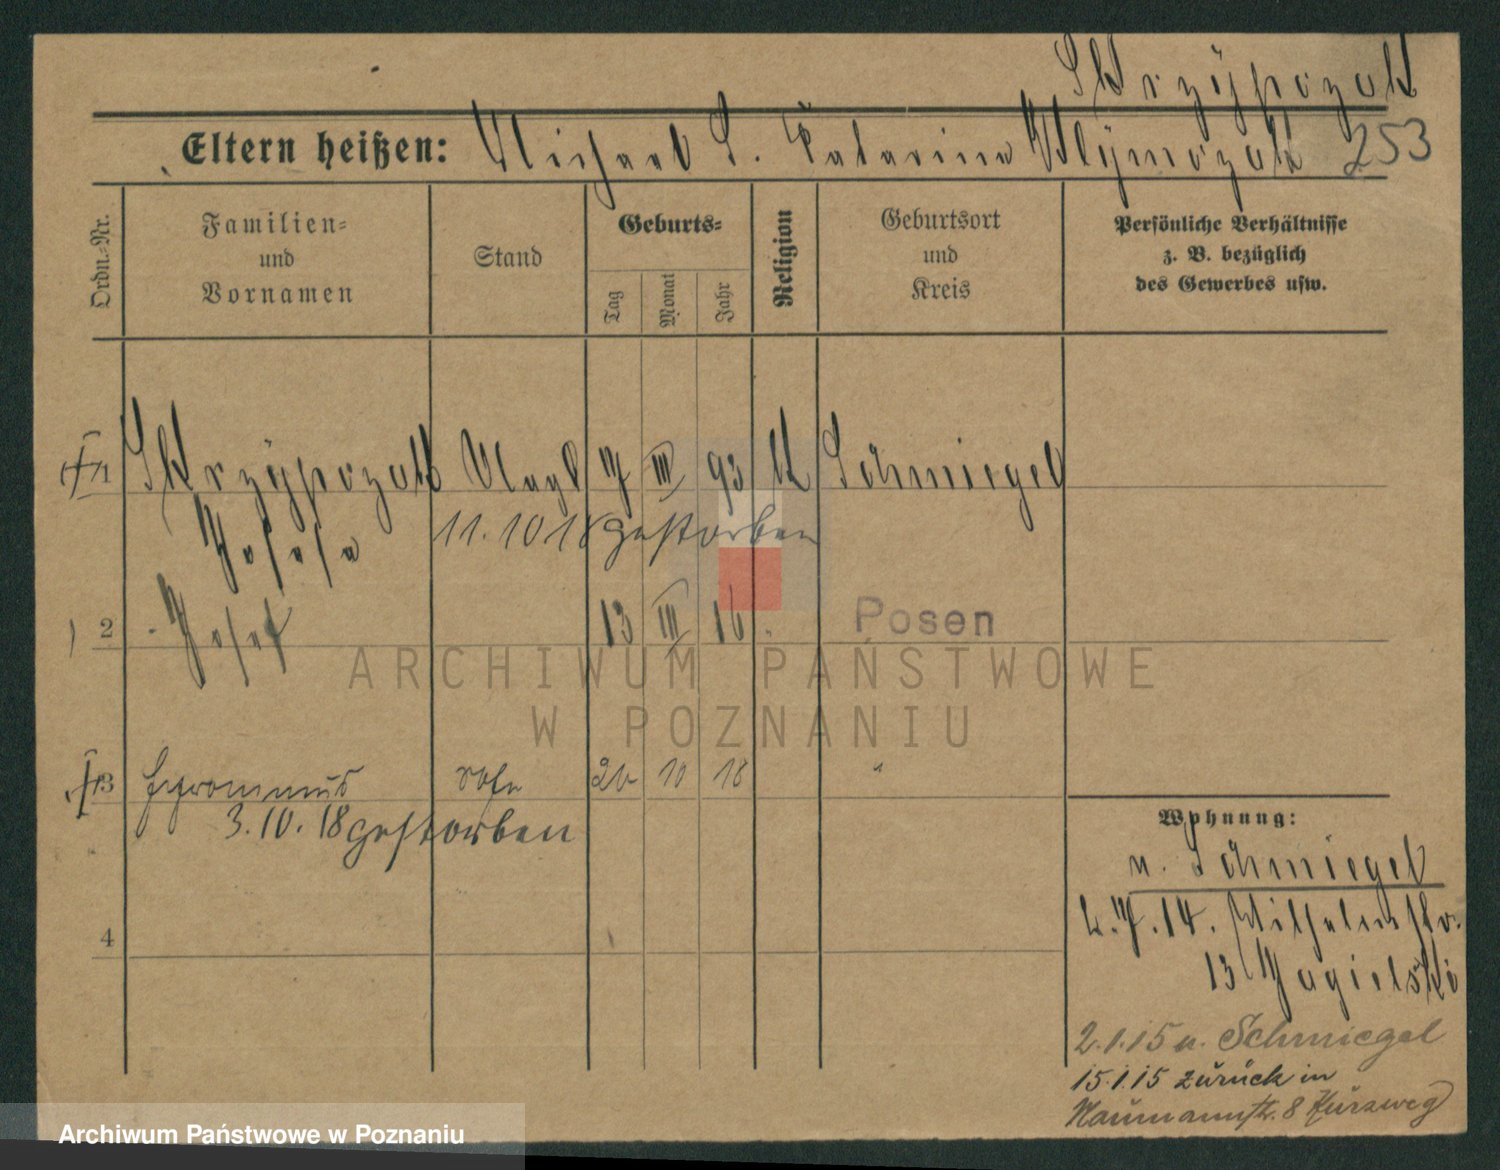 Skrzypczak
Eltern heißen: Michael S. Katarina Klymczak 253
Ordn.-Nr.
Familien-
und
Vornamen
Stand
Geburts-
Tag
Monat
Jahr
Religion
Geburtsort
und
Kreis
Persönliche Verhältnisse
z. B. bezüglich
des Gewerbes usw.
1 Skrzypczak Magd III 93 k Schmiegel
Josefa 11.10 18 gestorben
2 Josef 13 III 16 Posen
3 Hyronimus 10 18 "
3.10.18 gestorben
4
Wohnung:
n. Schmiegel
14. Wilhelmstr.
13 Jagielski
2.1.15 n. Schmiegel
15.1.15 zurück in
Naumannstr. 8 Kurzweg
ARCHIWUM PAŃSTWOWE
W POZNANIU
Archiwum Państwowe w Poznaniu